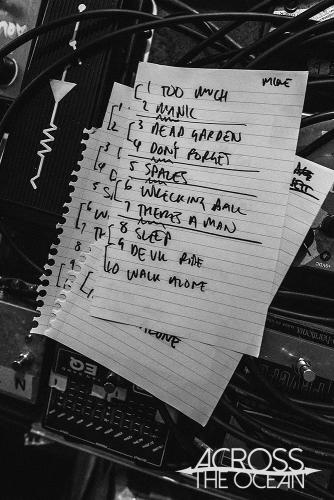 MIKE
1 TOO MUCH
2 MANIC
3 DEAD GARDEN
4 DON'T FORGET
5 SPACES
6 WRECKING BALL
7 THERES A MAN
8 SLEEP
9 DEVIL RIDE
10 WALK ALONE
EQ
ACROSS
THE OCEAN